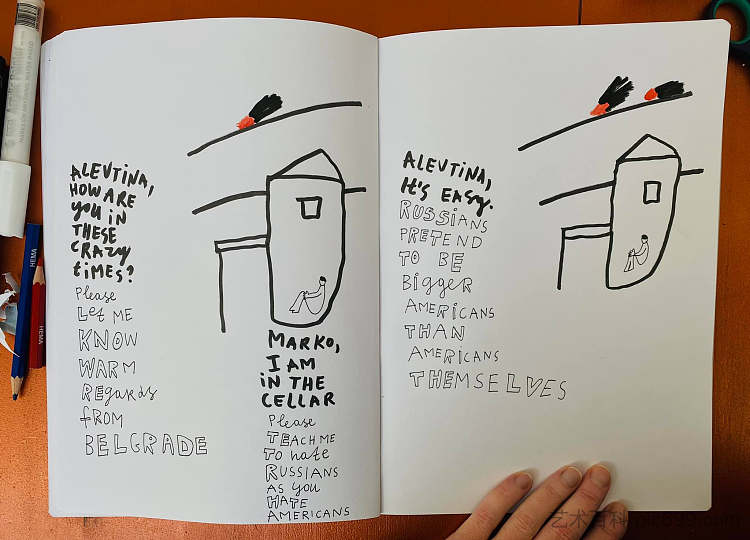 ALEVTINA,
HOW ARE
you iN
THESE
CRAZy
tiMES?
Please
Let ME
KNOW
WARM
Regards
fROM
BELGRADE
MARKO,
I AM
iN THE
CELLAR
Please
TEACH ME
To hate
RUSSIANS
AS you
HATE
AMERICANS
ALEVTiNA,
it's EASy.
RUSSiANS
PRETEND
TO BE
BiggER
AMERiCANS
THAN
AMERiCANS
THEMSELVES
HEMA
HEMA